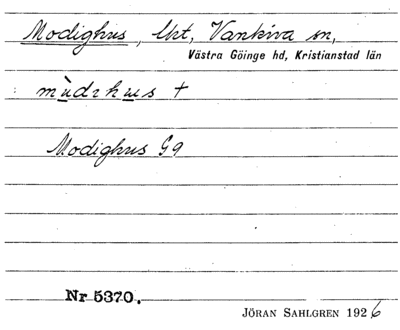 Modighus, Ukt, Vankiva sn,
Västra Göinge hd, Kristianstad län
: mùdzhus +
Modighus G9
Nr 5370.
JÖRAN SAHLGREN 1926